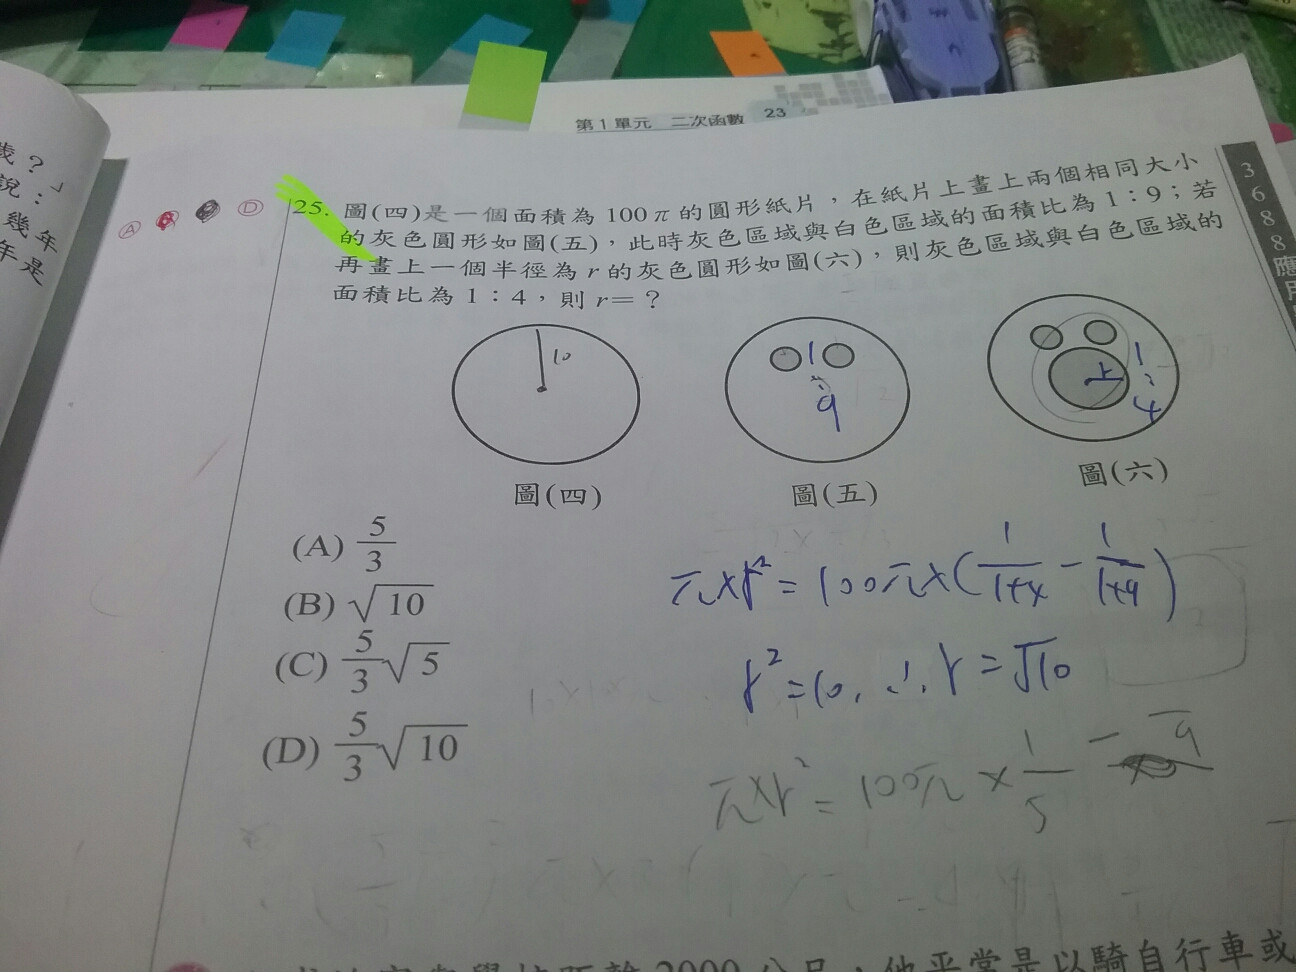 第1單元 二次函數 23
歲?」
說:
幾年
年是
3688應用
Ⓐ Ⓓ
25. 圖(四)是一個面積為100π的圓形紙片,在紙片上畫上兩個相同大小
的灰色圓形如圖(五),此時灰色區域與白色區域的面積比為1:9;若
再畫上一個半徑為r的灰色圓形如圖(六),則灰色區域與白色區域的
面積比為1:4,則r=?
10
1:9
r
1:4
圖(四) 圖(五) 圖(六)
(A) 5/3
(B) √10
(C) 5/3 √5
(D) 5/3 √10
π×r²=100π×(1/(1+4) - 1/(1+9))
r²=10, ∴ r=√10
π×r²=100π×1/5 - 9
2000公尺,他平常是以騎自行車或